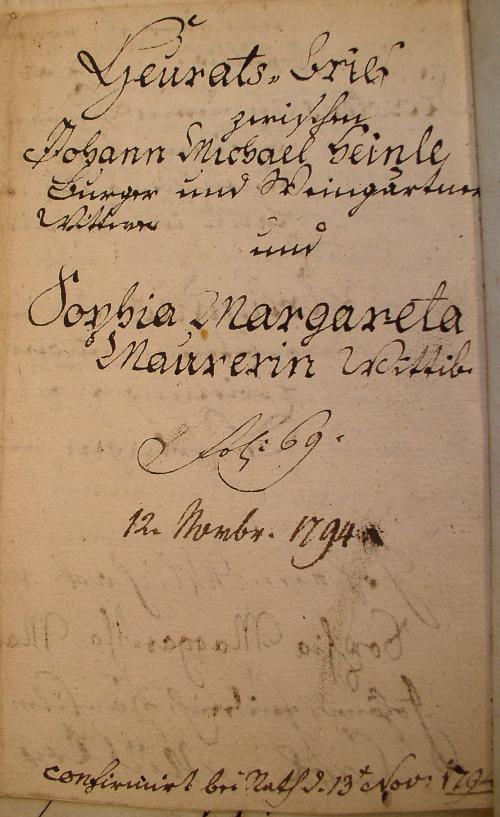 Heurats-brief
zwischen
Johann Michael Heinle
burger und Weingärtner
Wittwer
und
Sophia Margareta
Maurerin Wittib.
Fol: 69.
12. Novbr. 1794
confirmirt bei Rath d. 13t Nov: 1794